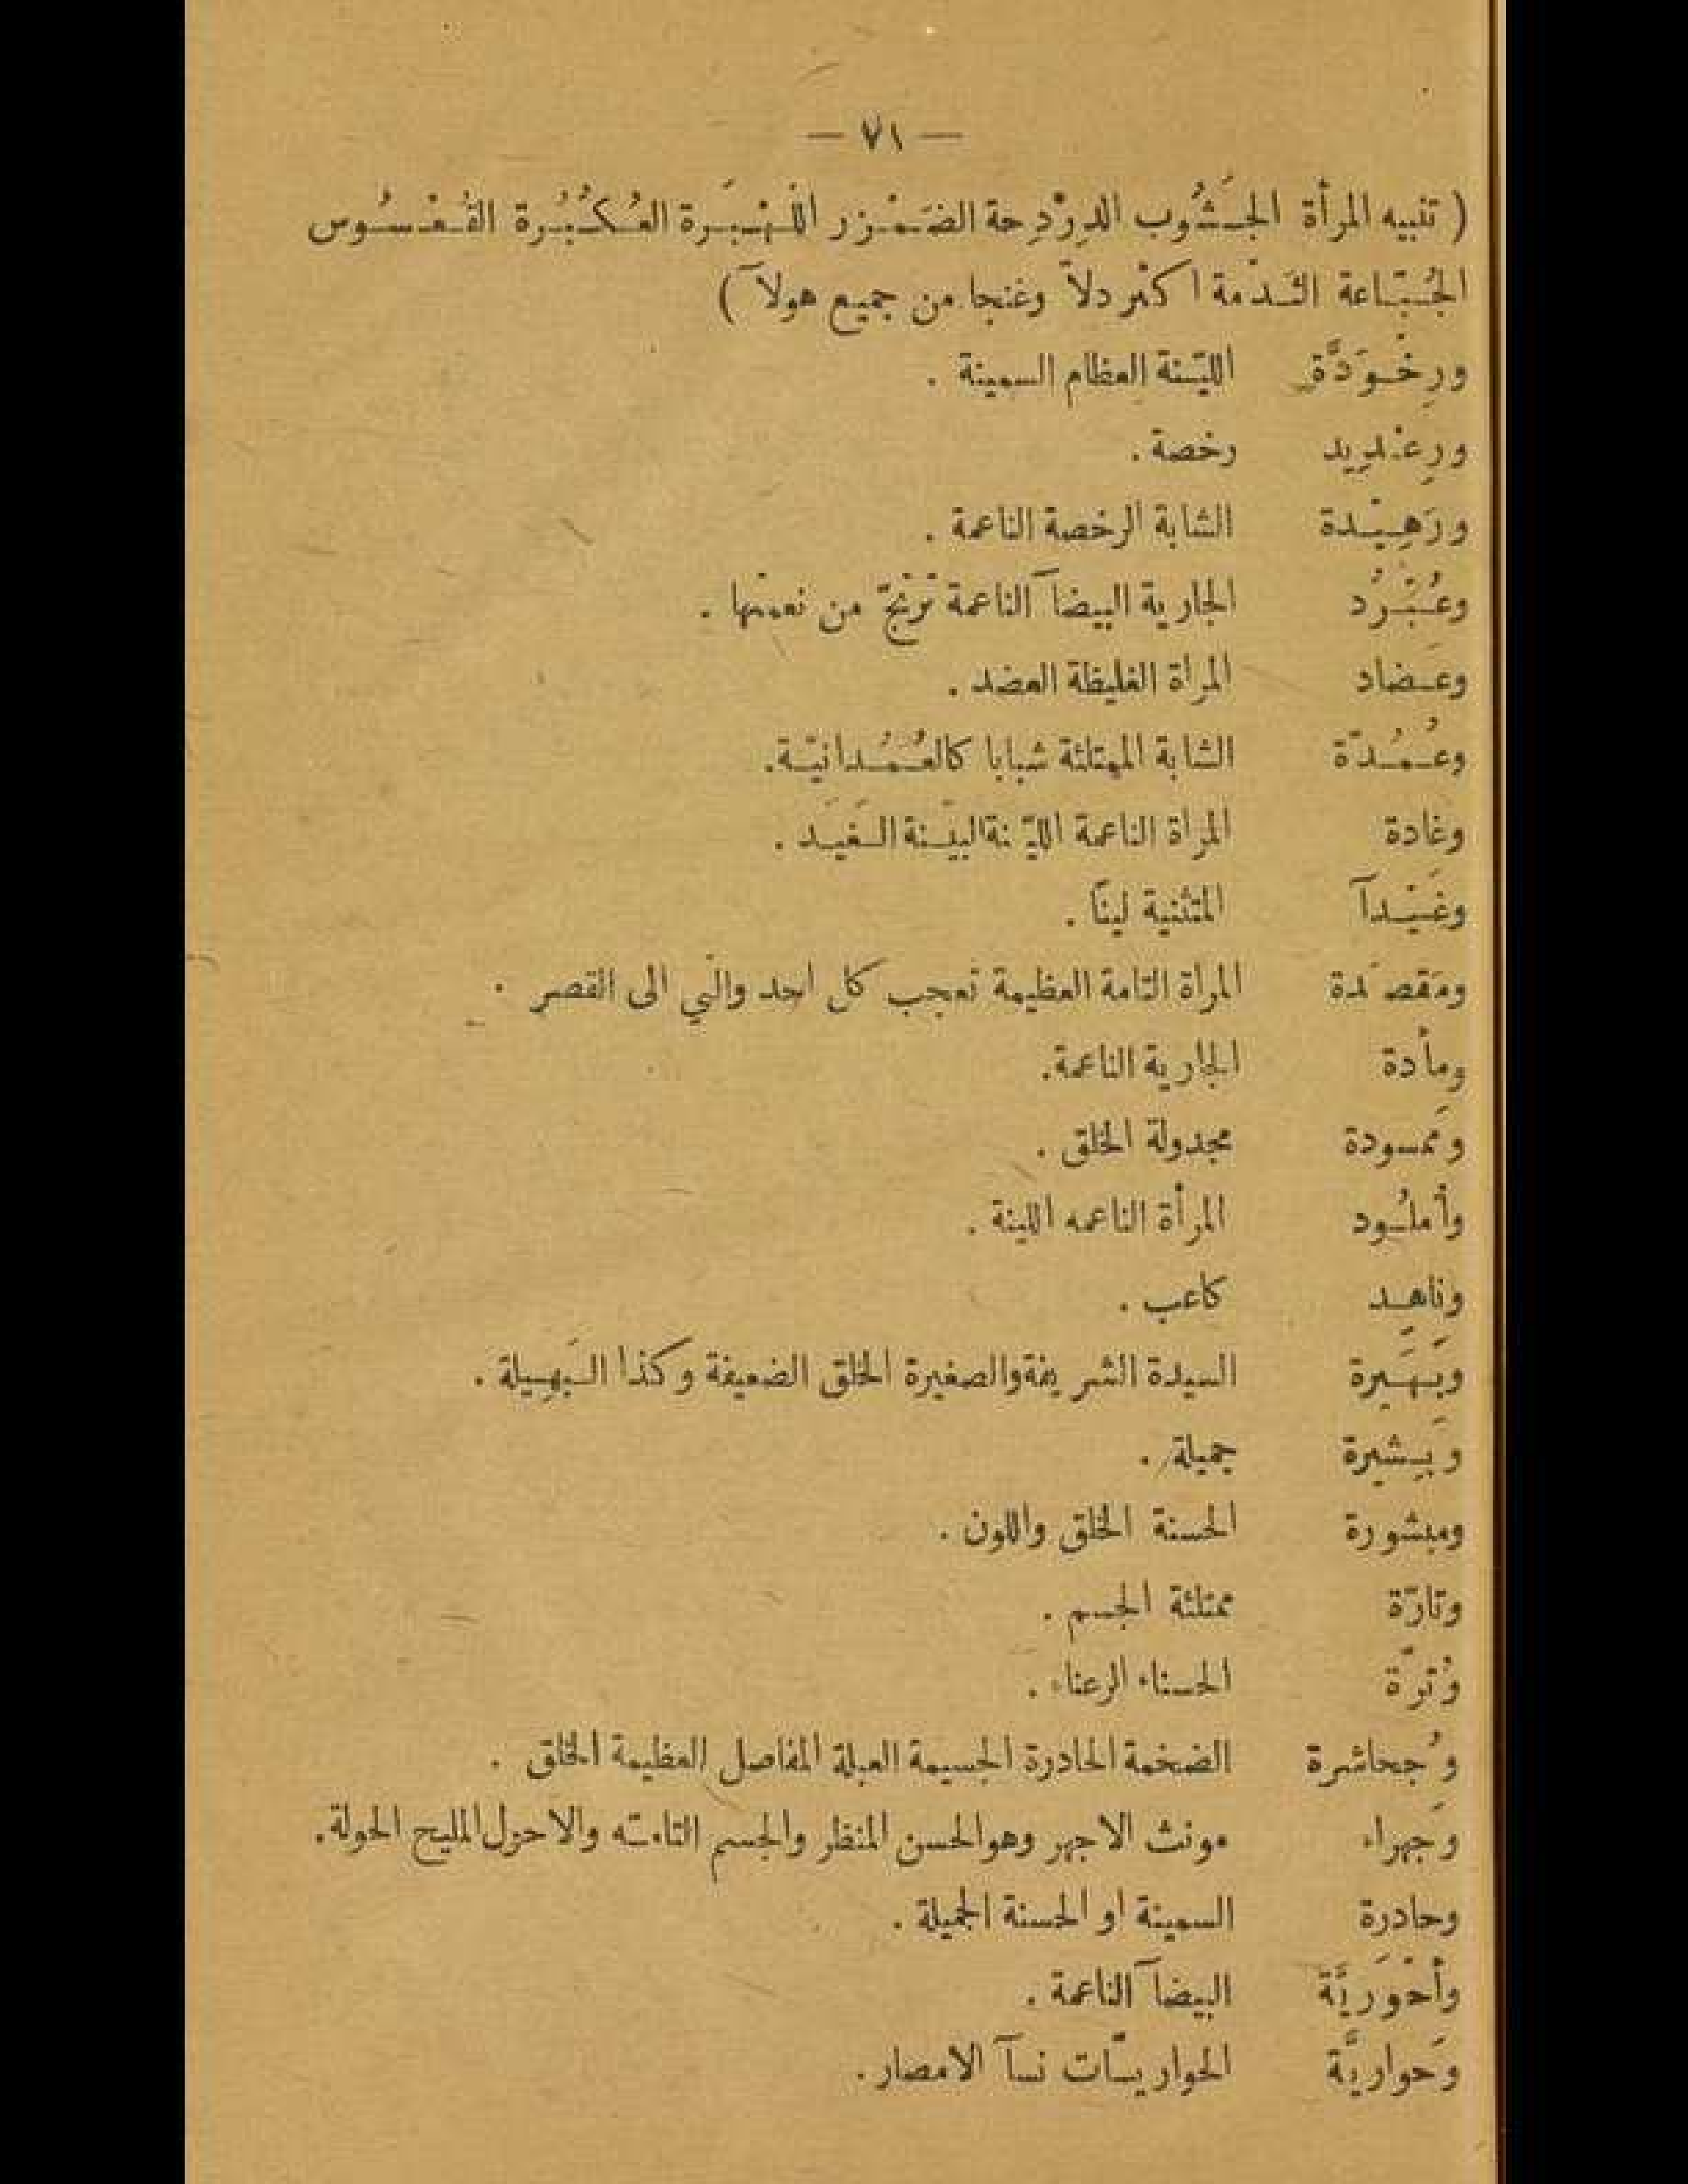 — ٧١ —
( تنبيه المرأة الجَشُوب الدِرْدِحة الضَمْزر اللَّهْبَرة العُكْبُرة القُعْسُوس
الجُبّاعة الثَدْمة اكثر دلاّ وغنجا من جميع هولآ )
ورِخْوَدَّة اللَيّنة العظام السمينة .
ورِعْدِيد رخصة .
ورَهِيْدة الشابة الرخصة الناعمة .
وعُبْرُد الجارية البيضآ الناعمة تَرْتَجّ من نعمتها .
وعَضاد المرأة الغليظة العضد .
وعُمُدّة الشابة الممتلئة شبابا كالعُمُدانيّة.
وغادة المرأة الناعمة الليّنة البيّنة الغَيَد .
وغَيْدآ المتثنية لينًا .
ومُقصَدة المرأة التامة العظيمة تعجب كل احد والتي الى القصر .
ومأدة الجارية الناعمة.
ومَمسودة مجدولة الخلق .
وأُملُود المرأة الناعمه اللينة .
وناهِد كاعب .
وبَهِيرة السيدة الشريفة والصغيرة الخلق الضعيفة وكذا البَهِيلة .
وبَشيرة جميلة .
ومبشورة الحسنة الخلق واللون .
وتارّة ممتلئة الجسم .
وتُرّة الحسناء الرعناء .
وجُحاشرة الضخمة الحادرة الجسيمة العبلة المفاصل العظيمة الخلق .
وجَهراء مونث الاجهر وهو الحسن المنظر والجسم التامّه والاحول المليح الحولة.
وحادرة السمينة او الحسنة الجميلة .
وأَحْوَريَّة البيضآ الناعمة .
وحَواريَّة الحواريّات نسآ الامصار.